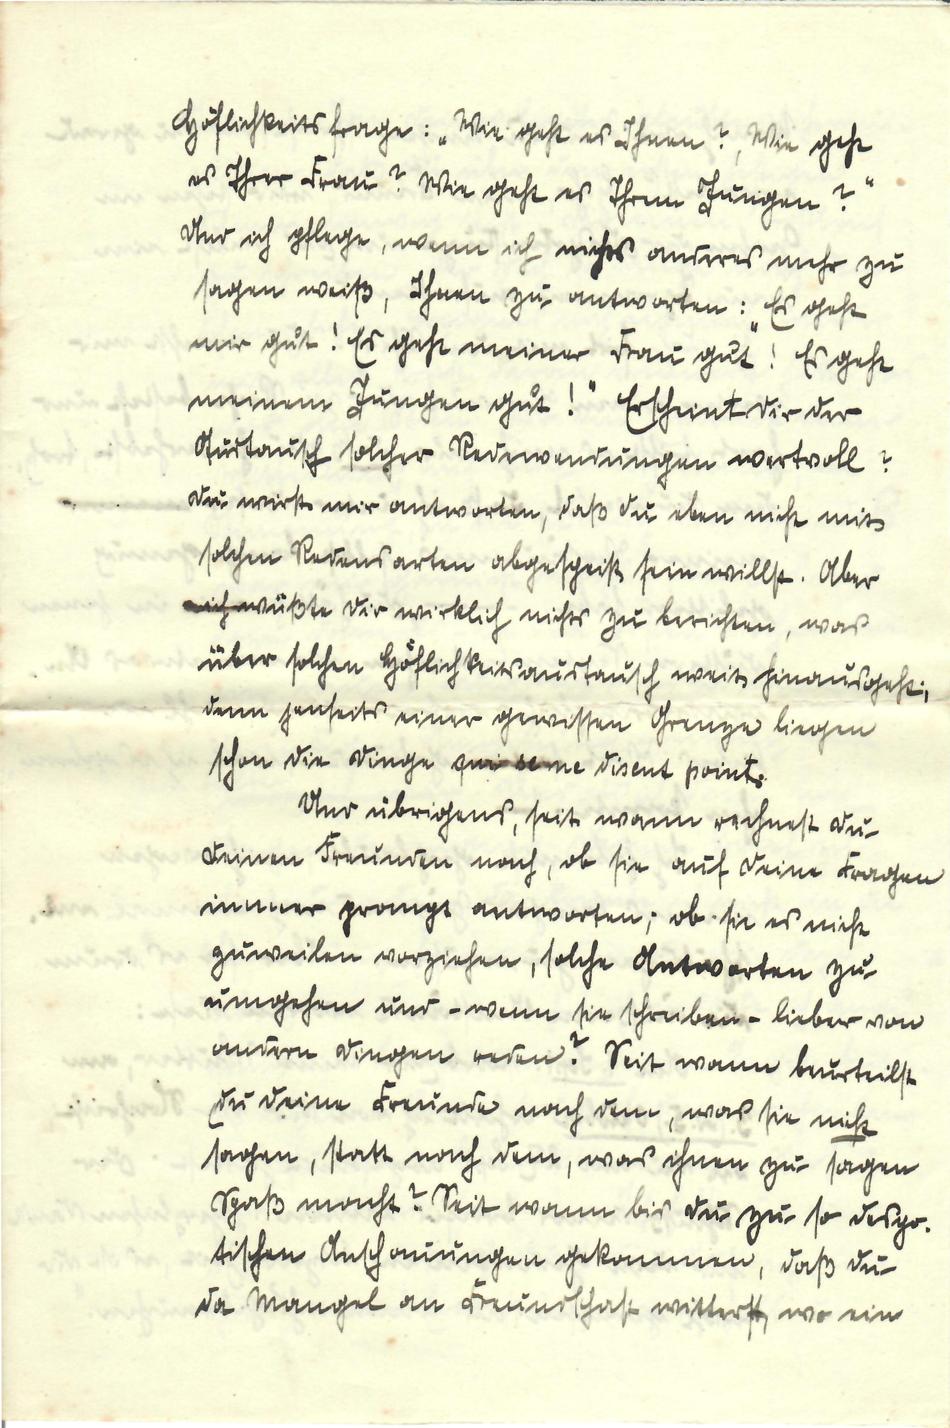 Höflichkeitsfrage: „Wie geht es Ihnen?, Wie geht
es Ihrer Frau? Wie geht es Ihrem Jungen?"
Und ich pflege, wenn ich nichts anderes mehr zu
sagen weiß, Ihnen zu antworten: „Es geht
mir gut! Es geht meiner Frau gut! Es geht
meinem Jungen gut!" Erscheint dir der
Austausch solcher Redewendungen wertvoll?
Du wirst mir antworten, daß du eben nicht mit
solchen Redensarten abgespeist sein willst. Aber
ich wüßte dir wirklich nichts zu berichten, was
über solchen Höflichkeitsaustausch weit hinausgeht;
denn jenseits einer gewissen Grenze liegen
schon die Dinge qui se ne disent point.
Und übrigens, seit wann rechnest du
deinen Freunden nach, ob sie auf deine Fragen
immer prompt antworten; ob sie es nicht
zuweilen vorziehen, solche Antworten zu
umgehen und - wenn sie schreiben - lieber von
andern Dingen reden? Seit wann beurteilst
du deine Freunde nach dem, was sie nicht
sagen, statt nach dem, was ihnen zu sagen
Spaß macht? Seit wann bis du zu so despo-
tischen Anschauungen gekommen, daß du
da Mangel an Freundschaft witterst, wo ein